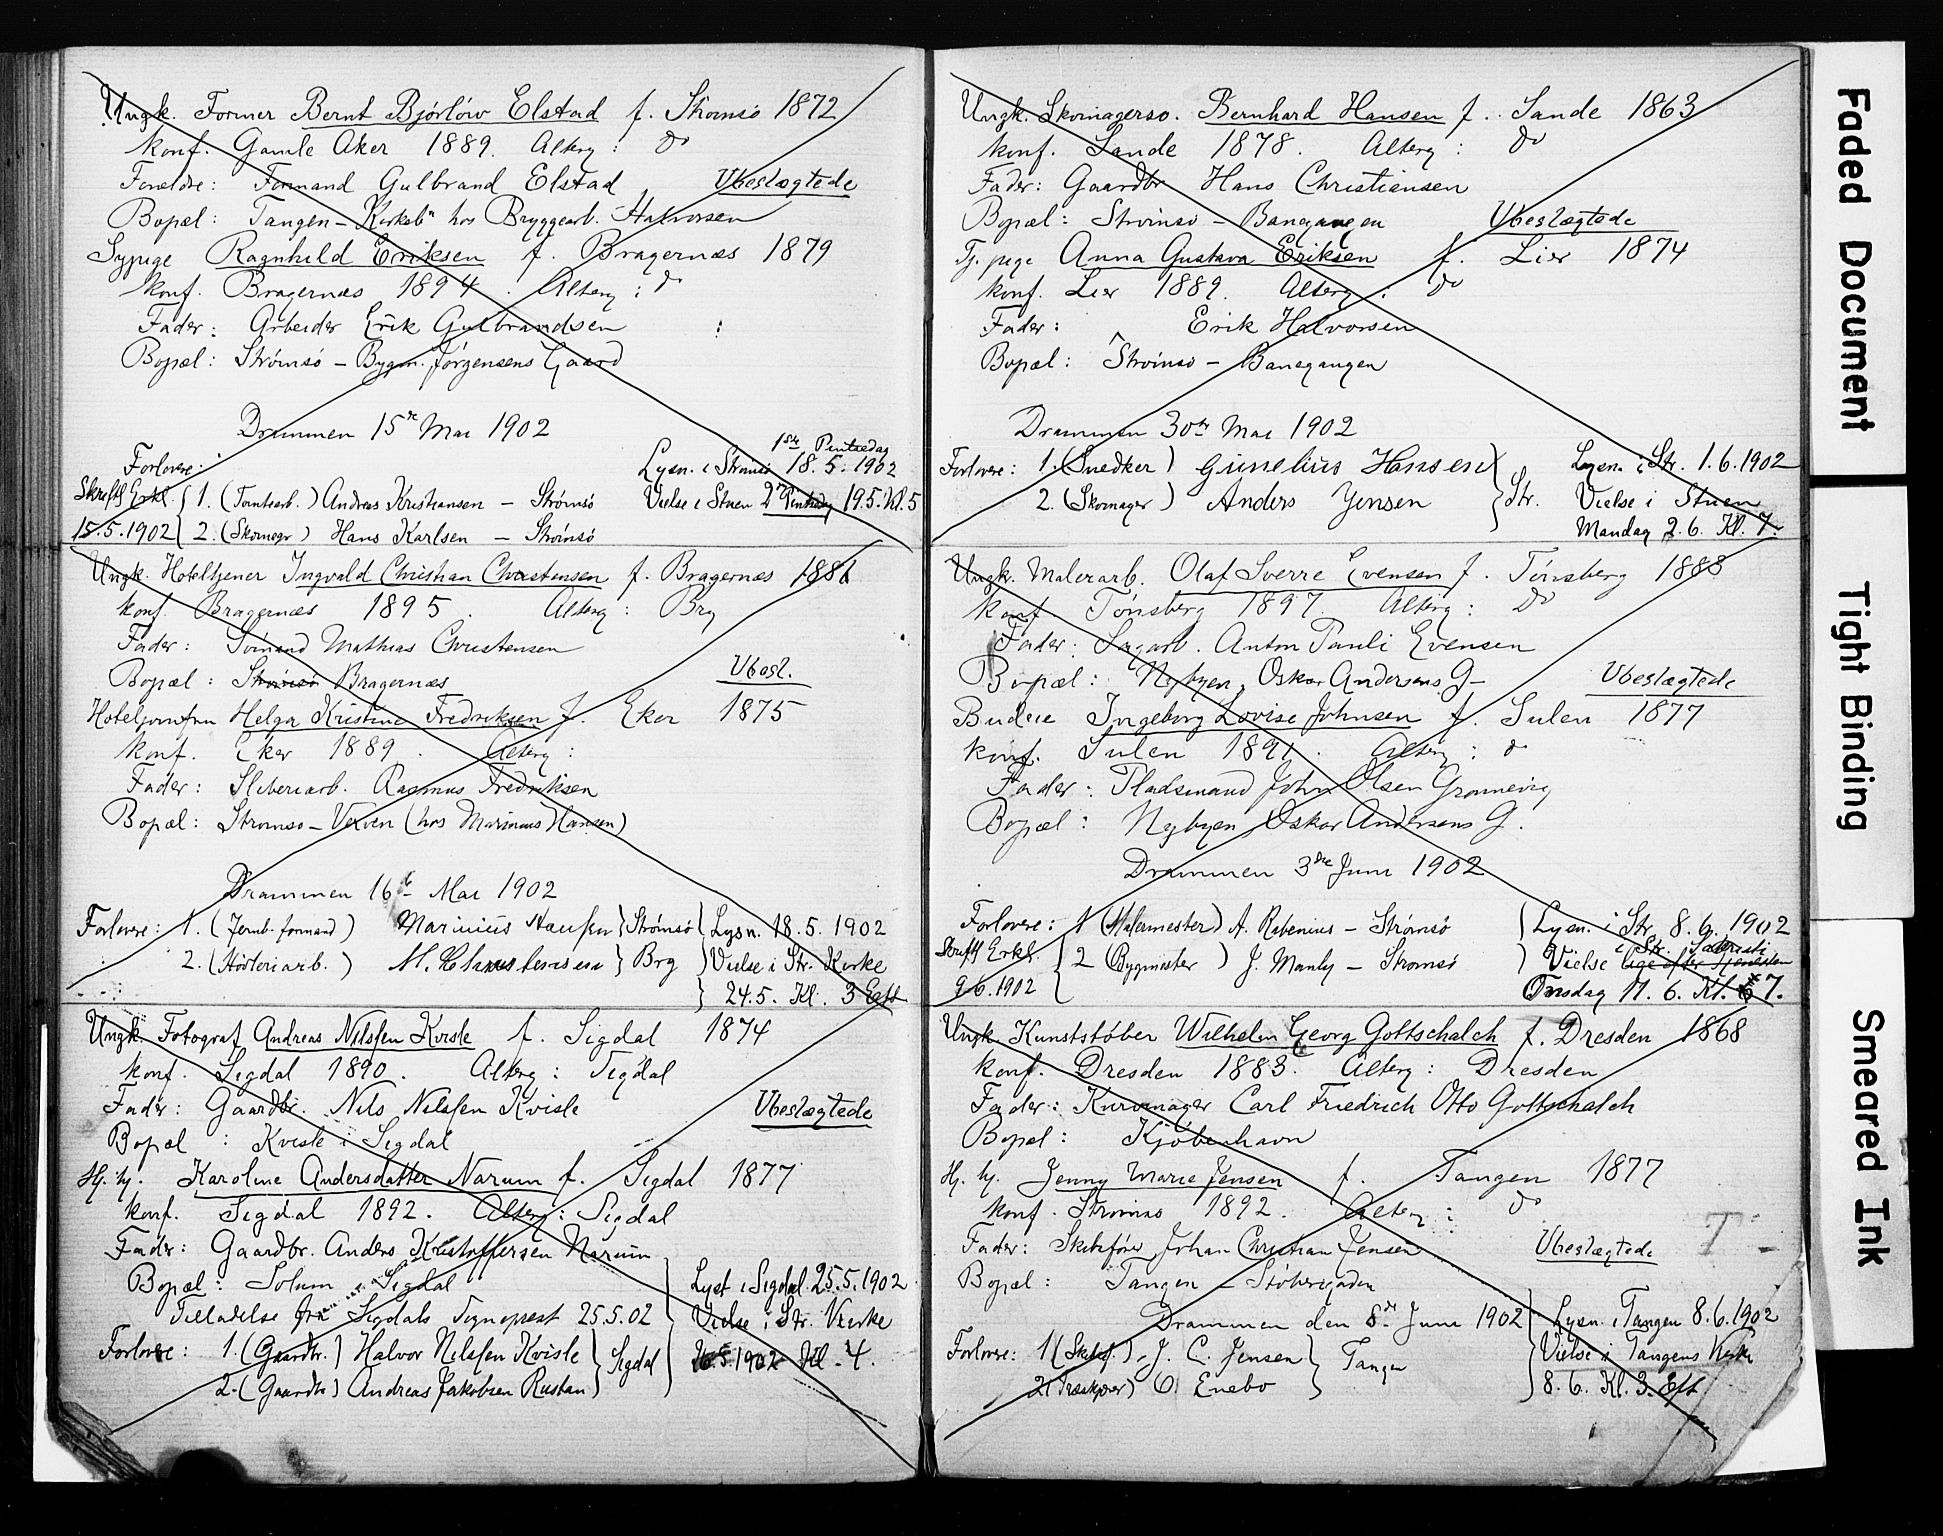 Ungk. Former Bernt Bjørløw Elstad f. Strømsø 1872
Konf. Gamle Aker 1889. Alterg: do
Forældre: Formand Gulbrand Elstad Ubeslægtede
Bopæl: Tangen – hos Bryggearb. Halvorsen
Sypige Ragnhild Eriksen f. Bragernæs 1879
Konf. Bragernæs 1894. Alterg: do
Fader: Arbeider Erik Gulbrandsen
Bopæl: Strømsø – Bygm. Jørgensens Gaard
Drammen 15de Mai 1902
1ste Pintsedag
Forlovere: Lysn. i Strømsø 18.5.1902
Skriftl Erkl. { 1. (Tomtearb.) Andreas Kristiansen – Strømsø Vielse i Stuen 2den Pintsedag 19.5. Kl. 5
15.5.1902 { 2. (Skomagr) Hans Karlsen – Strømsø
Ungk. Hoteltjener Ingvald Christian Christensen f. Bragernæs 1881
Konf. Bragernæs 1895. Alterg: Brg
Fader: Sømand Mathias Christensen
Bopæl: Strømsø Bragernæs Ubesl.
Hoteljomfru Helga Kristine Fredriksen f. Eker 1875
Konf. Eker 1889. Alterg:
Fader: Sliberiarb. Rasmus Fredriksen
Bopæl: Strømsø – Verven (hos Marinius Hansen)
Drammen 16de Mai 1902
Forlovere: 1. (Jernb. formand) Marinius Hansen } Strømsø { Lysn. 18.5.1902
2. (Høvleriarb.) M. Christensen } Brg } Vielse i Str. Kirke
} 24.5. Kl. 3 Eft
Ungk. Fotograf Andreas Nilssen Kvisle f. Sigdal 1874
Konf. Sigdal 1890. Alterg: Sigdal
Fader: Gaardbr. Nils Nilssen Kvisle Ubeslægtede
Bopæl: Kvisle i Sigdal
Hj. hj. Karoline Andersdatter Narum f. Sigdal 1877
Konf. Sigdal 1892. Alterg: Sigdal
Fader: Gaardbr. Anders Kristoffersen Narum
Bopæl: Solum Sigdal } Lyst i Sigdal 25.5.1902
Tilladelse fra Sigdals Sognepræst 25.5.02 } Vielse i Str. Kirke
Forlovere: 1. (Gaardbr.) Halvor Nilssen Kvisle } Sigdal 26.5.1902 Kl. 4.
2. (Gaardbr) Andreas Jakobsen Rustan }
Ungk. Skomagersv. Bernhard Hansen f. Sande 1863
Konf. Sande 1878. Alterg: do
Fader: Gaardbr Hans Christiensen
Bopæl: Strømsø – Banegangen Ubeslægtede
Tj. pige Anna Gustava Eriksen f. Lier 1874
Konf. Lier 1889. Alterg: do
Fader: Erik Halvorsen
Bopæl: Strømsø – Banegangen
Drammen 30te Mai 1902
Forlovere: 1. (Snedker) Gunelius Hansen } Lysn. i Str. 1.6.1902
2. (Skomager) Anders Jensen } Str. Vielse i Stuen
Mandag 2.6. Kl. 7.
Ungk. Malerarb. Olaf Sverre Evensen f. Tønsberg 1883
Konf. Tønsberg 1897. Alterg: do
Fader: Sagarb. Anton Pauli Evensen
Bopæl: Nybyen, Oskar Andersens G– Ubeslægtede
Budeie Ingeborg Lovise Johnsen f. Sulen 1877
Konf. Sulen 1891. Alterg: do
Fader: Pladsmand John Olsen Grønnevig
Bopæl: Nybyen Oskar Andersens G.
Drammen 3die Juni 1902
Forlovere: 1 (Malermester) A. Rabenius – Strømsø } Lysn. i Str 8.6.1902
Skriftl Erkl. { 2 (Bygmester) J. Manly – Strømsø } Vielse lige efter Tjenesten i Str. Sakristi
9.6.1902 Onsdag 11.6. Kl. 7.
Ungk. Kunststøber Wilhelm Georg Gottschalch f. Dresden 1868
Konf. Dresden 1883. Alterg: Dresden
Fader: Kurvmager Carl Friedrich Otto Gottschalch
Bopæl: Kjøbenhavn
Hj. hj. Jenny Marie Jensen f. Tangen 1877
Konf. Strømsø 1892. Alterg: do
Fader: Skibsfører Johan Christian Jensen Ubeslægtede
Bopæl: Tangen – Støberigaden
Drammen den 8de Juni 1902 } Lysn. i Tangen 8.6.1902
Forlovere: 1 (Skibsf.) J. C. Jensen } Tangen } Vielse i Tangens Kirke
2 (Træskjærer) O. Enebo } 8.6. Kl. 3. Eft
Faded Document
Tight Binding
Smeared Ink